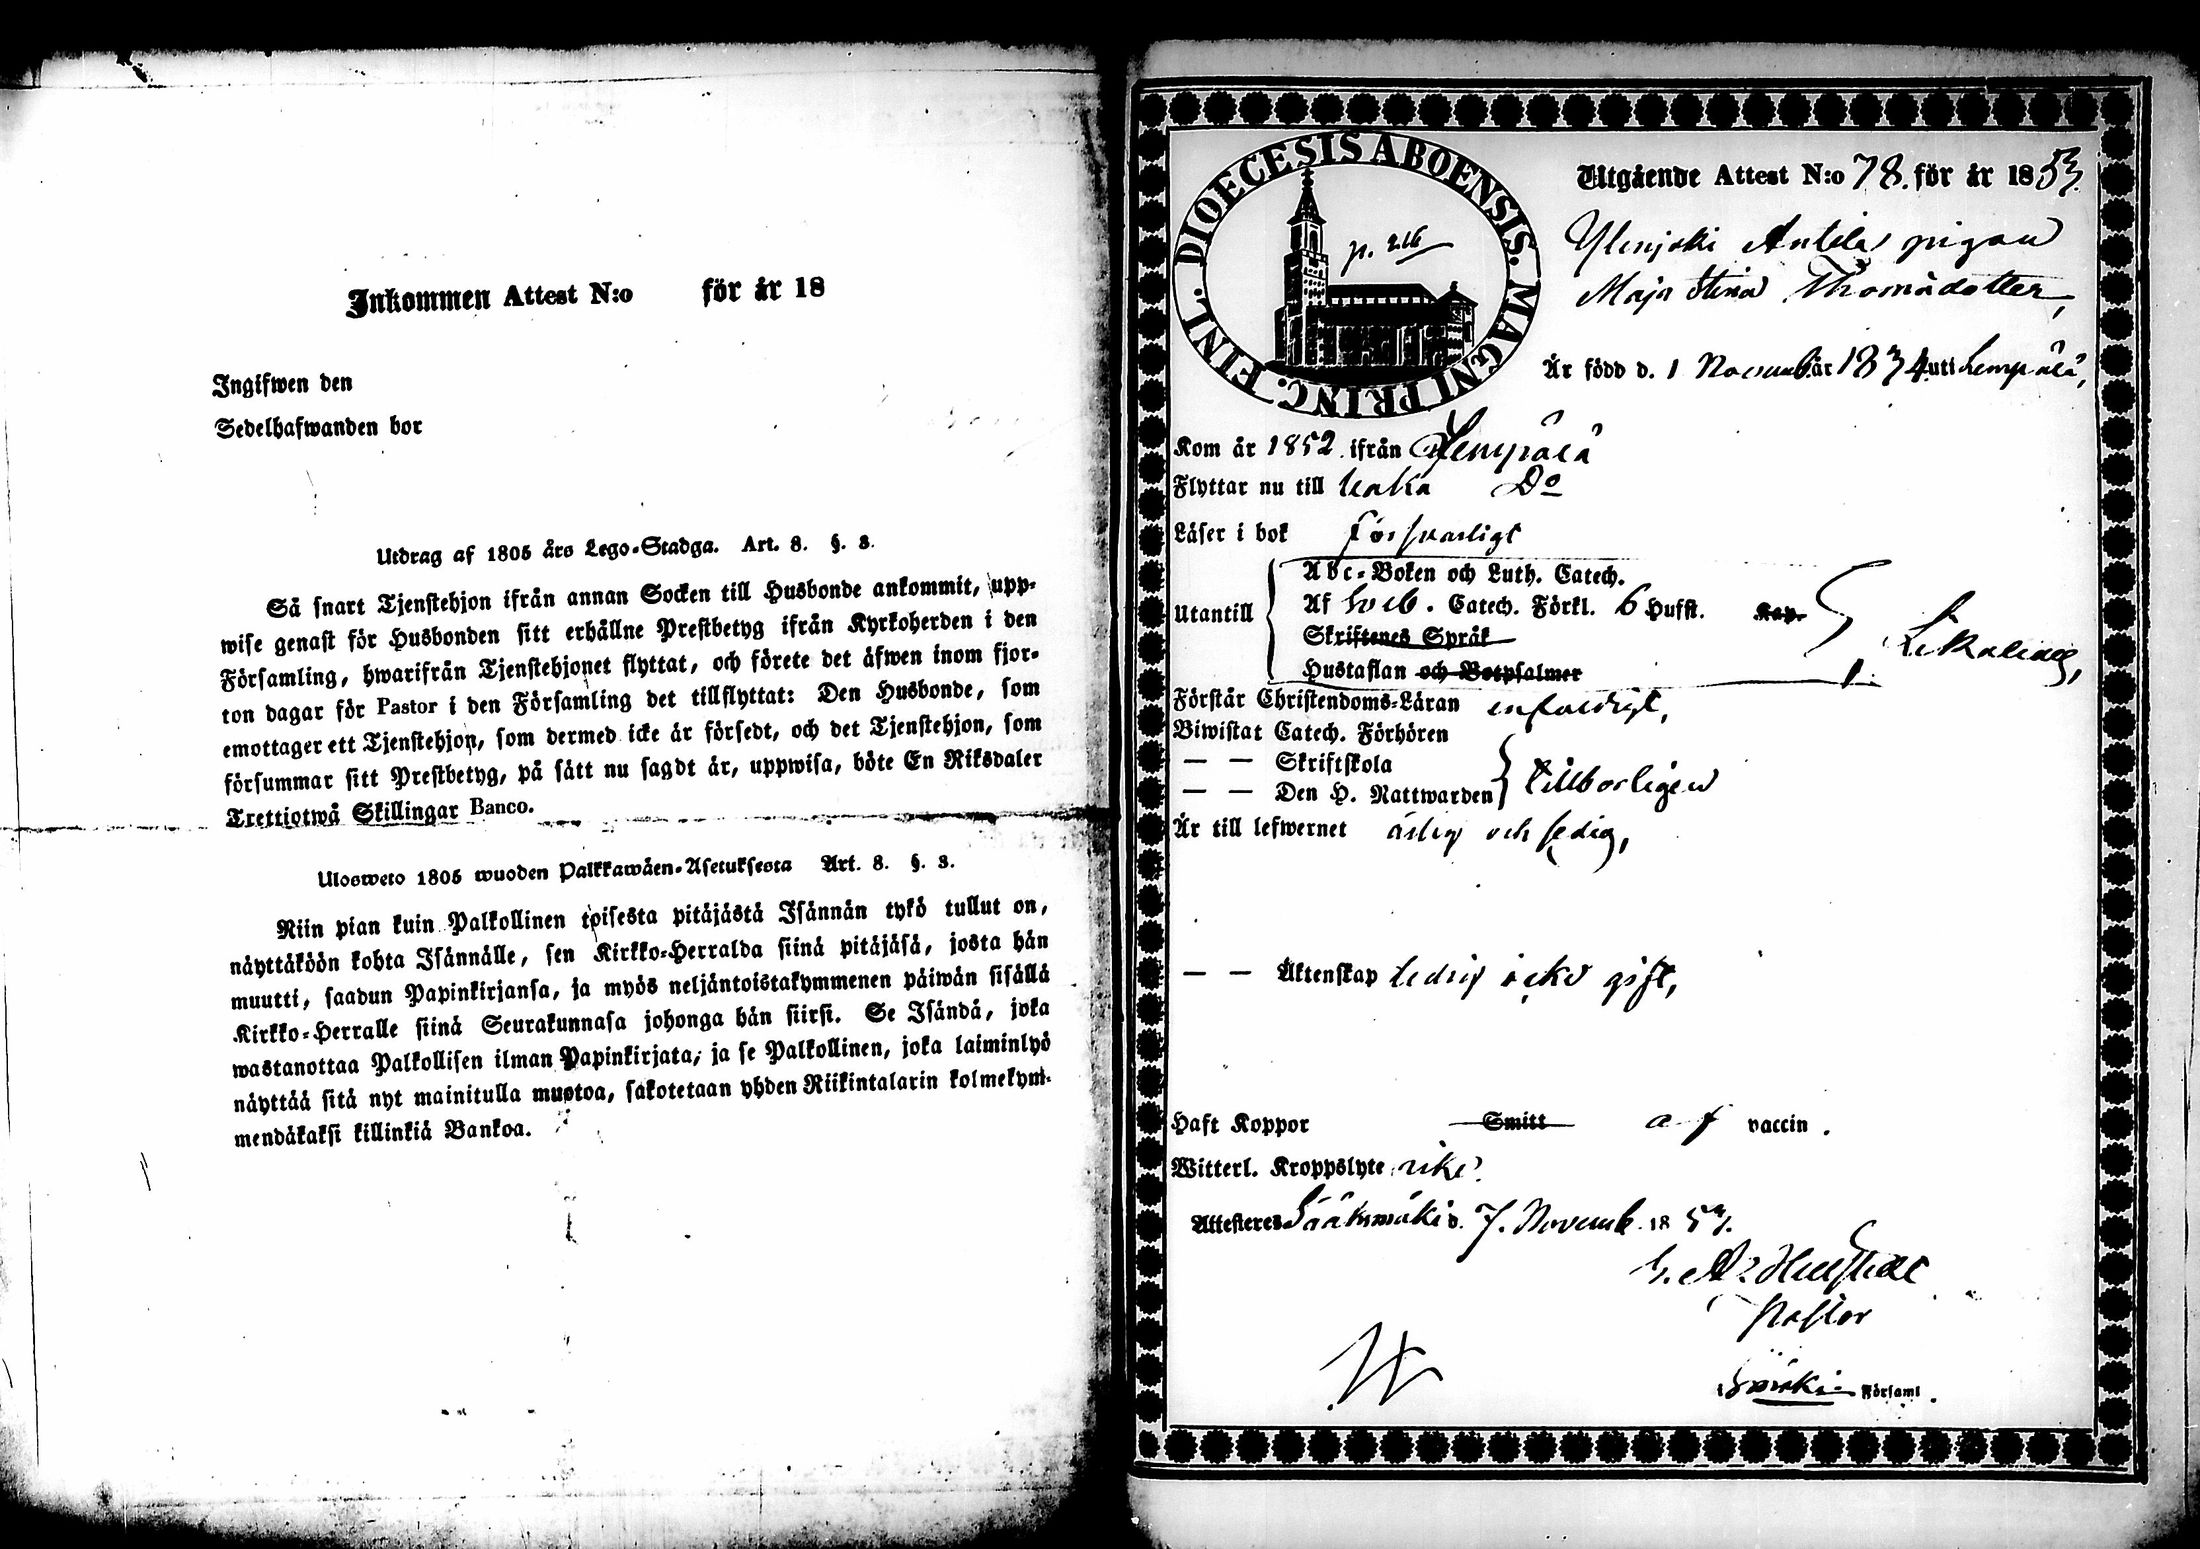 Inkommen Attest N:o för år 18
Ingifwen den
Sedelhafwanden bor
Utdrag af 1805 års Lego-Stadga. Art. 8. §. 3.
Så snart Tjenstehjon ifrån annan Socken till Husbonde ankommit, upp-
wise genast för Husbonden sitt erhållne Prestbetyg ifrån Kyrkoherden i den
Församling, hwarifrån Tjenstehjonet flyttat, och förete det äfwen inom fjor-
ton dagar för Pastor i den Församling det tillflyttat: Den Husbonde, som
emottager ett Tjenstehjon, som dermed icke är försedt, och det Tjenstehjon, som
försummar sitt Prestbetyg, på sätt nu sagdt är, uppwisa, böte En Riksdaler
Trettiotwå Skillingar Banco.
Ulosweto 1805 wuoden Palkkawäen-Asetuksesta Art. 8. §. 3.
Niin pian kuin Palkollinen toisesta pitäjästä Isännän tykö tullut on,
näyttäköön kohta Isännälle, sen Kirkko-Herralda siinä pitäjäsä, josta hän
muutti, saadun Papinkirjansa, ja myös neljäntoistakymmenen päiwän sisällä
Kirkko-Herralle siinä Seurakunnasa johonga hän siirsi. Se Isändä, joka
wastanottaa Palkollisen ilman Papinkirjata, ja se Palkollinen, joka laiminlyö
näyttää sitä nyt mainitulla muotoa, sakotetaan yhden Riikintalarin kolmekym-
mendäkaksi killinkiä Bankoa.
DIOECESIS ABOENSIS. MAGNI PRINC. FINL.
p. 216
Utgående Attest N:o 78. för år 1853.
Ylenjoki Antila pigan
Maja Stina Thomasdotter,
Är född d. 1 Novemb. år 1834 uti Lempälä,
Kom år 1852 ifrån Lempälä
Flyttar nu till Do
Läser i bok försvarligt
Utantill
Abc-Boken och Luth. Catech.
Af Sveb. Catech. Förkl. 6 Hufst. Kap.
Skriftenes Språk
Hustaflan och Botpsalmer
Förstår Christendoms-Läran enfaldigt,
Biwistat Catech. Förhören
— — Skriftskola
— — Den H. Nattwarden tillbörligen
Är till lefwernet ärlig och sedig,
— — Äktenskap ledig icke gift,
Haft Koppor Smitt af vaccin.
Witterl. Kroppslyte icke.
Attesteres Sääksmäki d. 7. Novemb. 1853.
Pastor
Församl.